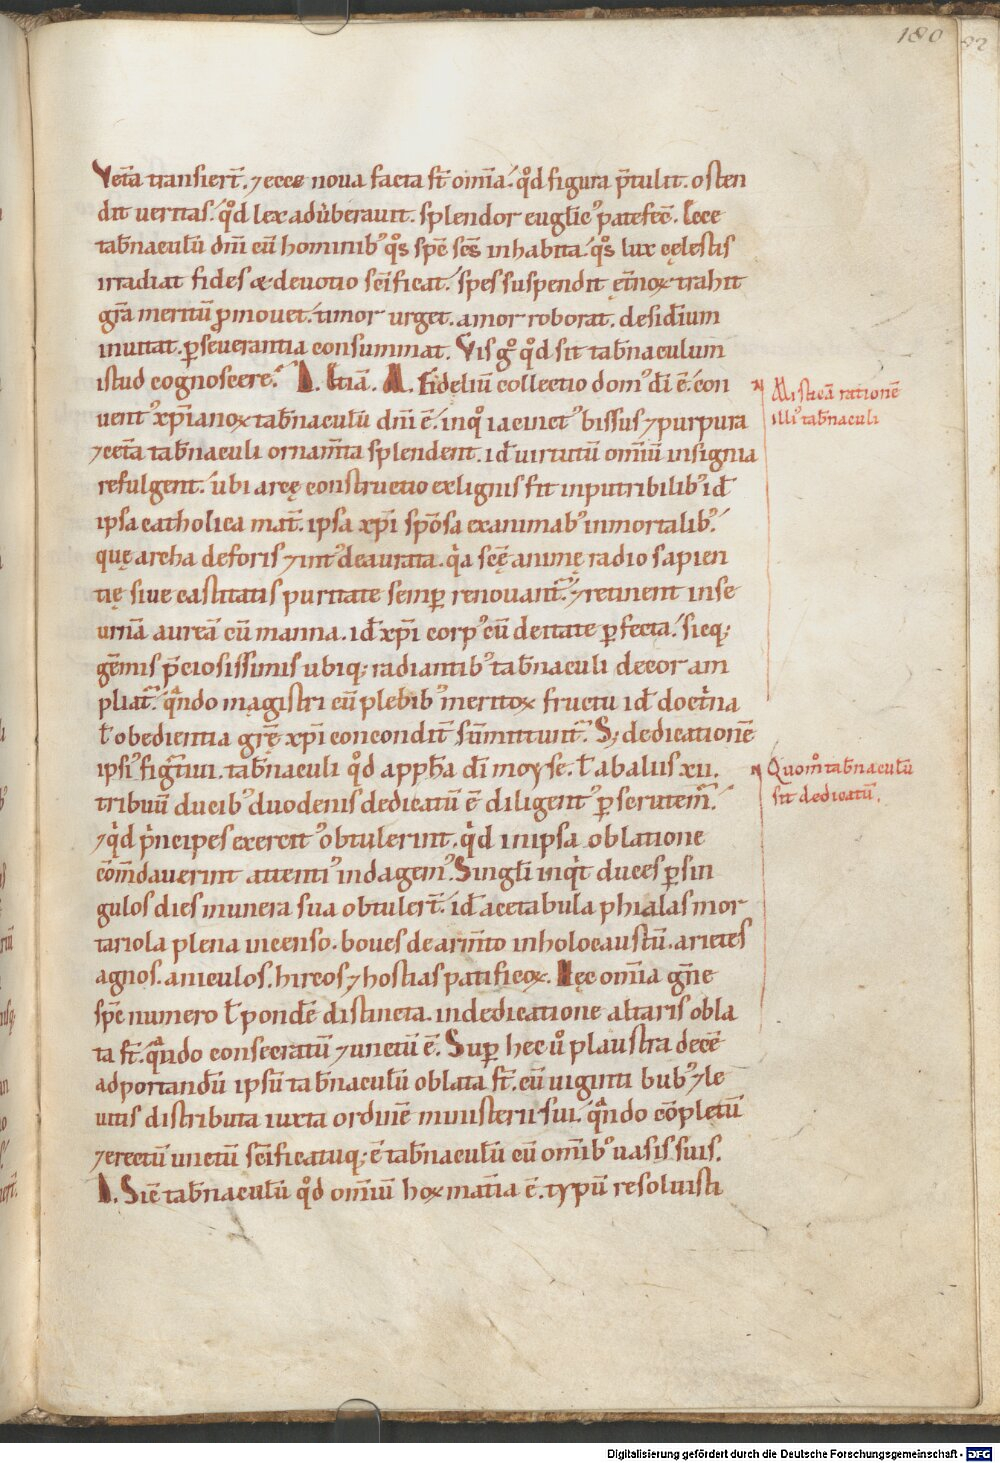 180
82
Vet̄a transiert̄. ⁊ ecce nova facta st̄ omīa. qd̊ figura p̄tulit. osten
dit veritas. qd̊ lex adūberauit. splendor eug̃lic̄ꝰ patefec̄. Ecce
tab̄naculū dn̄i cū hominibꝰ qo̊s spc̄ sc̄s inhabitat. qo̊s lux cęlestis
irradiat fides & devotio sc̄ificat. spes suspendit ęt̄noꝝ trahit
gr̄a meritū ꝓmovet. timor urget. amor roborat. desid̄ium
inuitat. ꝑseverantia consummat. Vis gͦ qd̊ sit tab̄naculum
istud cognoscere. D. Etiā. M. Fidelium collectio domꝰ dī ē. con
ventꝰ xp̄ianoꝝ tab̄naculū dn̄i ē. in qͦ iacinctꝰ bissus ⁊ purpura
⁊ cet̄a tab̄naculi ornam̄ta splendent. id̄ virtutū omīū insignia
refulgent. ubi arcę constructio ex lignis fit inputribilibꝰ id̄
ipsa catholica mat̄. ipsa xp̄i spōsa ex animabꝰ inmortalibꝰ.
quę archa deforis ⁊ intꝰ deaurata. qͥa sc̄ę animę radio sapien
tię sive castitatis puritate semꝑ renouant̄ ⁊ retinent in se
urnā aureā cū manna. id̄ xp̄i corpꝰ cū deitate ꝑfecta. sicq;
gēmis p̄ciosissimis ubiq; radiantibꝰ tab̄naculi decor am
pliat̄. qᷓndo magistri cū plebibꝰ meritoꝝ fructu id̄ doctͥna
ł obedientia gr̄ę xp̄i concordit̄ sūmittunt̄. S; dedicationē
ipsiꝰ figͣtiui tab̄naculi qd̊ app̄ħa dī moyse. ł a baluis xii.
tribuū ducibꝰ duodenis dedicatū ē diligentꝰ ꝑscrutem̄.
⁊ qͥd pͥncipes exercitꝰ obtulerint. qͥd in ipsa oblatione
cōm̄daverint attentiꝰ indagemꝰ. Singl̄i inqͥt duces ꝑ sin
gulos dies munera sua obtulert̄. id̄ acetabula phialas mor
tariola plena incenso. boues de arm̄to in holocaustū. arietes
agnos. aniculos. hircos ⁊ hostias pacificoꝝ. Hęc omīa gn̄e
spc̄ numero ł pondē distincta. in dedicatione altaris obla
ta st̄. qᷓndo consecratū ⁊ unctū ē. Suꝑ hec ů plaustra decē
ad portandū ipsū tab̄naculū oblata st̄. cū uiginti bubꝰ ⁊ le
uitis distributa iuxta ordinē ministerii sui. qᷓndo cōpletū
⁊ erectū unctū sc̄ificatūq; ē tab̄naculū cū omībꝰ uasis suis.
D. Sic̄ tab̄naculū qd̊ omīū hoꝝ mat̄ia ē. typū resoluisti
Misticā rationē
illiꝰ tab̄naculi
Quom̊ tab̄naculū
sit dedicatū.
Digitalisierung gefördert durch die Deutsche Forschungsgemeinschaft - DFG